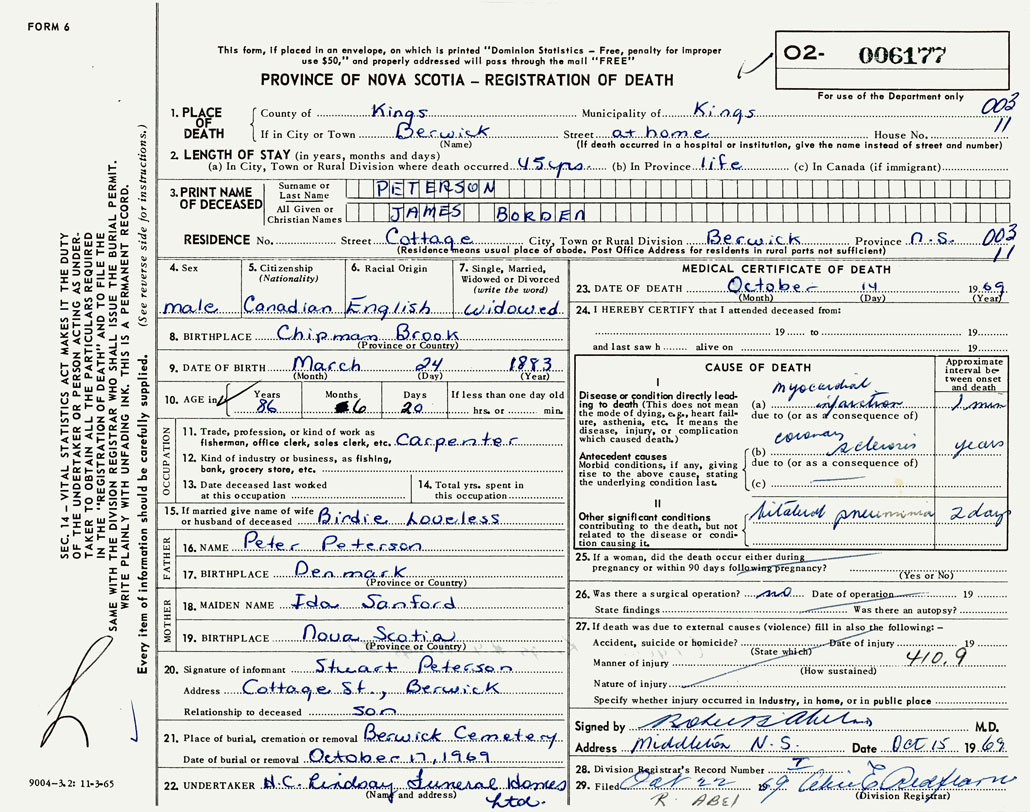 FORM 6
This form, if placed in an envelope, on which is printed "Dominion Statistics – Free, penalty for improper
use $50," and properly addressed will pass through the mail "FREE"
PROVINCE OF NOVA SCOTIA – REGISTRATION OF DEATH
O2- 006177
For use of the Department only
003
11
1. PLACE OF DEATH
County of Kings Municipality of Kings
If in City or Town Berwick Street at home House No.
(Name) (If death occurred in a hospital or institution, give the name instead of street and number)
2. LENGTH OF STAY (in years, months and days)
(a) In City, Town or Rural Division where death occurred 45 yrs. (b) In Province life (c) In Canada (if immigrant)
3. PRINT NAME OF DECEASED
Surname or Last Name PETERSON
All Given or Christian Names JAMES BORDEN
RESIDENCE No. Street Cottage City, Town or Rural Division Berwick Province N.S. 003
(Residence means usual place of abode. Post Office Address for residents in rural parts not sufficient) 11
4. Sex male
5. Citizenship (Nationality) Canadian
6. Racial Origin English
7. Single, Married, Widowed or Divorced (write the word) widowed
8. BIRTHPLACE Chipman Brook
(Province or Country)
9. DATE OF BIRTH March 24 1883
(Month) (Day) (Year)
10. AGE in Years 86 Months 6 Days 20 If less than one day old hrs. or min.
OCCUPATION
11. Trade, profession, or kind of work as
fisherman, office clerk, sales clerk, etc. Carpenter
12. Kind of industry or business, as fishing,
bank, grocery store, etc.
13. Date deceased last worked
at this occupation
14. Total yrs. spent in
this occupation
15. If married give name of wife
or husband of deceased Birdie Loveless
FATHER
16. NAME Peter Peterson
17. BIRTHPLACE Denmark
(Province or Country)
MOTHER
18. MAIDEN NAME Ida Sanford
19. BIRTHPLACE Nova Scotia
(Province or Country)
20. Signature of informant Stuart Peterson
Address Cottage St., Berwick
Relationship to deceased son
21. Place of burial, cremation or removal Berwick Cemetery
Date of burial or removal October 17, 1969
22. UNDERTAKER H.C. Lindsay Funeral Homes
(Name and address) Ltd.
MEDICAL CERTIFICATE OF DEATH
23. DATE OF DEATH October 14 1969
(Month) (Day) (Year)
24. I HEREBY CERTIFY that I attended deceased from:
19 to 19
and last saw h alive on 19
CAUSE OF DEATH
Approximate interval between onset and death
I
Disease or condition directly leading to death (This does not mean the mode of dying, e.g., heart failure, asthenia, etc. It means the disease, injury, or complication which caused death.)
(a) myocardial infarction 1 min
due to (or as a consequence of)
Antecedent causes
Morbid conditions, if any, giving rise to the above cause, stating the underlying condition last.
(b) coronary sclerosis years
due to (or as a consequence of)
(c)
II
Other significant conditions
contributing to the death, but not related to the disease or condition causing it.
bilateral pneumonia 2 days
25. If a woman, did the death occur either during
pregnancy or within 90 days following pregnancy?
(Yes or No)
26. Was there a surgical operation? no Date of operation 19
State findings Was there an autopsy?
27. If death was due to external causes (violence) fill in also the following: –
Accident, suicide or homicide? Date of injury 19
(State which)
Manner of injury 410.9
(How sustained)
Nature of injury
Specify whether injury occurred in industry, in home, or in public place
Signed by M.D.
Address Middleton N.S. Date Oct 15 1969
28. Division Registrar's Record Number
29. Filed Oct 22 1969
(Division Registrar)
R. ABEL
SEC. 14 – VITAL STATISTICS ACT MAKES IT THE DUTY
OF THE UNDERTAKER OR PERSON ACTING AS UNDER-
TAKER TO OBTAIN ALL THE PARTICULARS REQUIRED
IN THE "REGISTRATION OF DEATH" AND TO FILE THE
SAME WITH THE DIVISION REGISTRAR WHO SHALL ISSUE THE BURIAL PERMIT.
WRITE PLAINLY WITH UNFADING INK. THIS IS A PERMANENT RECORD.
Every item of information should be carefully supplied. (See reverse side for instructions.)
9004-3.2: 11-3-65